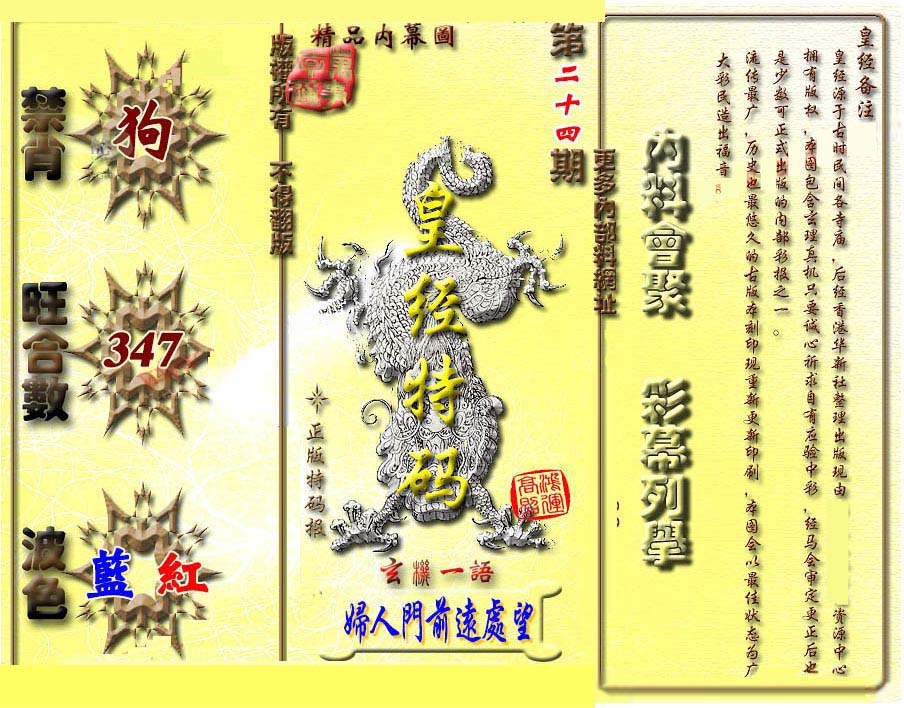 禁肖
狗
旺合數
347
波色
藍 紅
版權所有 不得翻版
精品內幕圖
第二十四期
皇经特码
正版特码报
鴻運高照
玄機一語
婦人門前遠處望
更多內部料網址
內料會聚 彩幕列舉
皇经备注
皇经源于古时民间各寺庙，后经香港华新社整理出版现由 资源中心
拥有版权，本图包含玄理真机只要诚心祈求自有应验中彩，经马会审定更正后也
是少数可正式出版的内部彩报之一。
流传最广，历史也最悠久的古版本刻印现重新更新印刷，本图会以最佳状态为广
大彩民造出福音